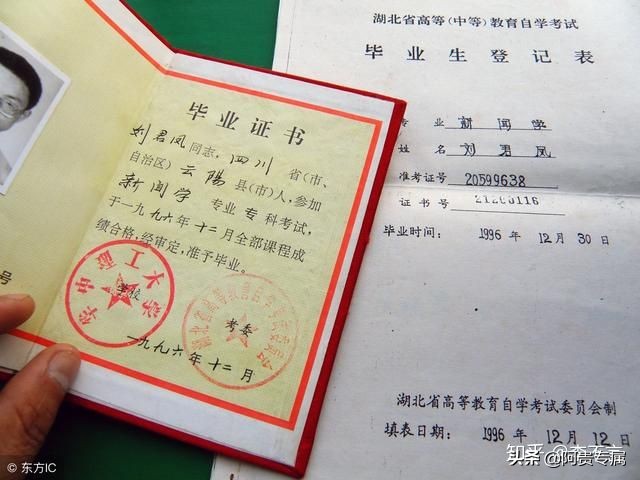 毕业证书
刘君凤同志，四川省(市、
自治区)云陽县(市)人，参加
新闻学专业专科考试，
于一九九六年十二月全部课程成
绩合格，经审定，准予毕业。
学校
考委
一九九六年十二月
号
湖北省高等(中等)教育自学考试
毕业生登记表
专业 新闻学
姓名 刘君凤
准考证号 20599638
证书号 21260116
毕业时间： 1996 年 12 月 30 日
湖北省高等教育自学考试委员会制
填表日期： 1996 年 12 月 12 日
© 东方IC
头条 @阿贵专属